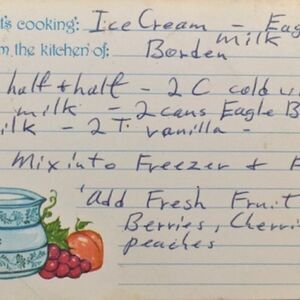 t's cooking: Ice Cream - Eag
Milk
m the kitchen of: Borden
half + half - 2 C cold w
milk - 2 cans Eagle B
ilk - 2 T. vanilla -
Mix into Freezer + F
Add Fresh Fruit
Berries, Cherri
peaches